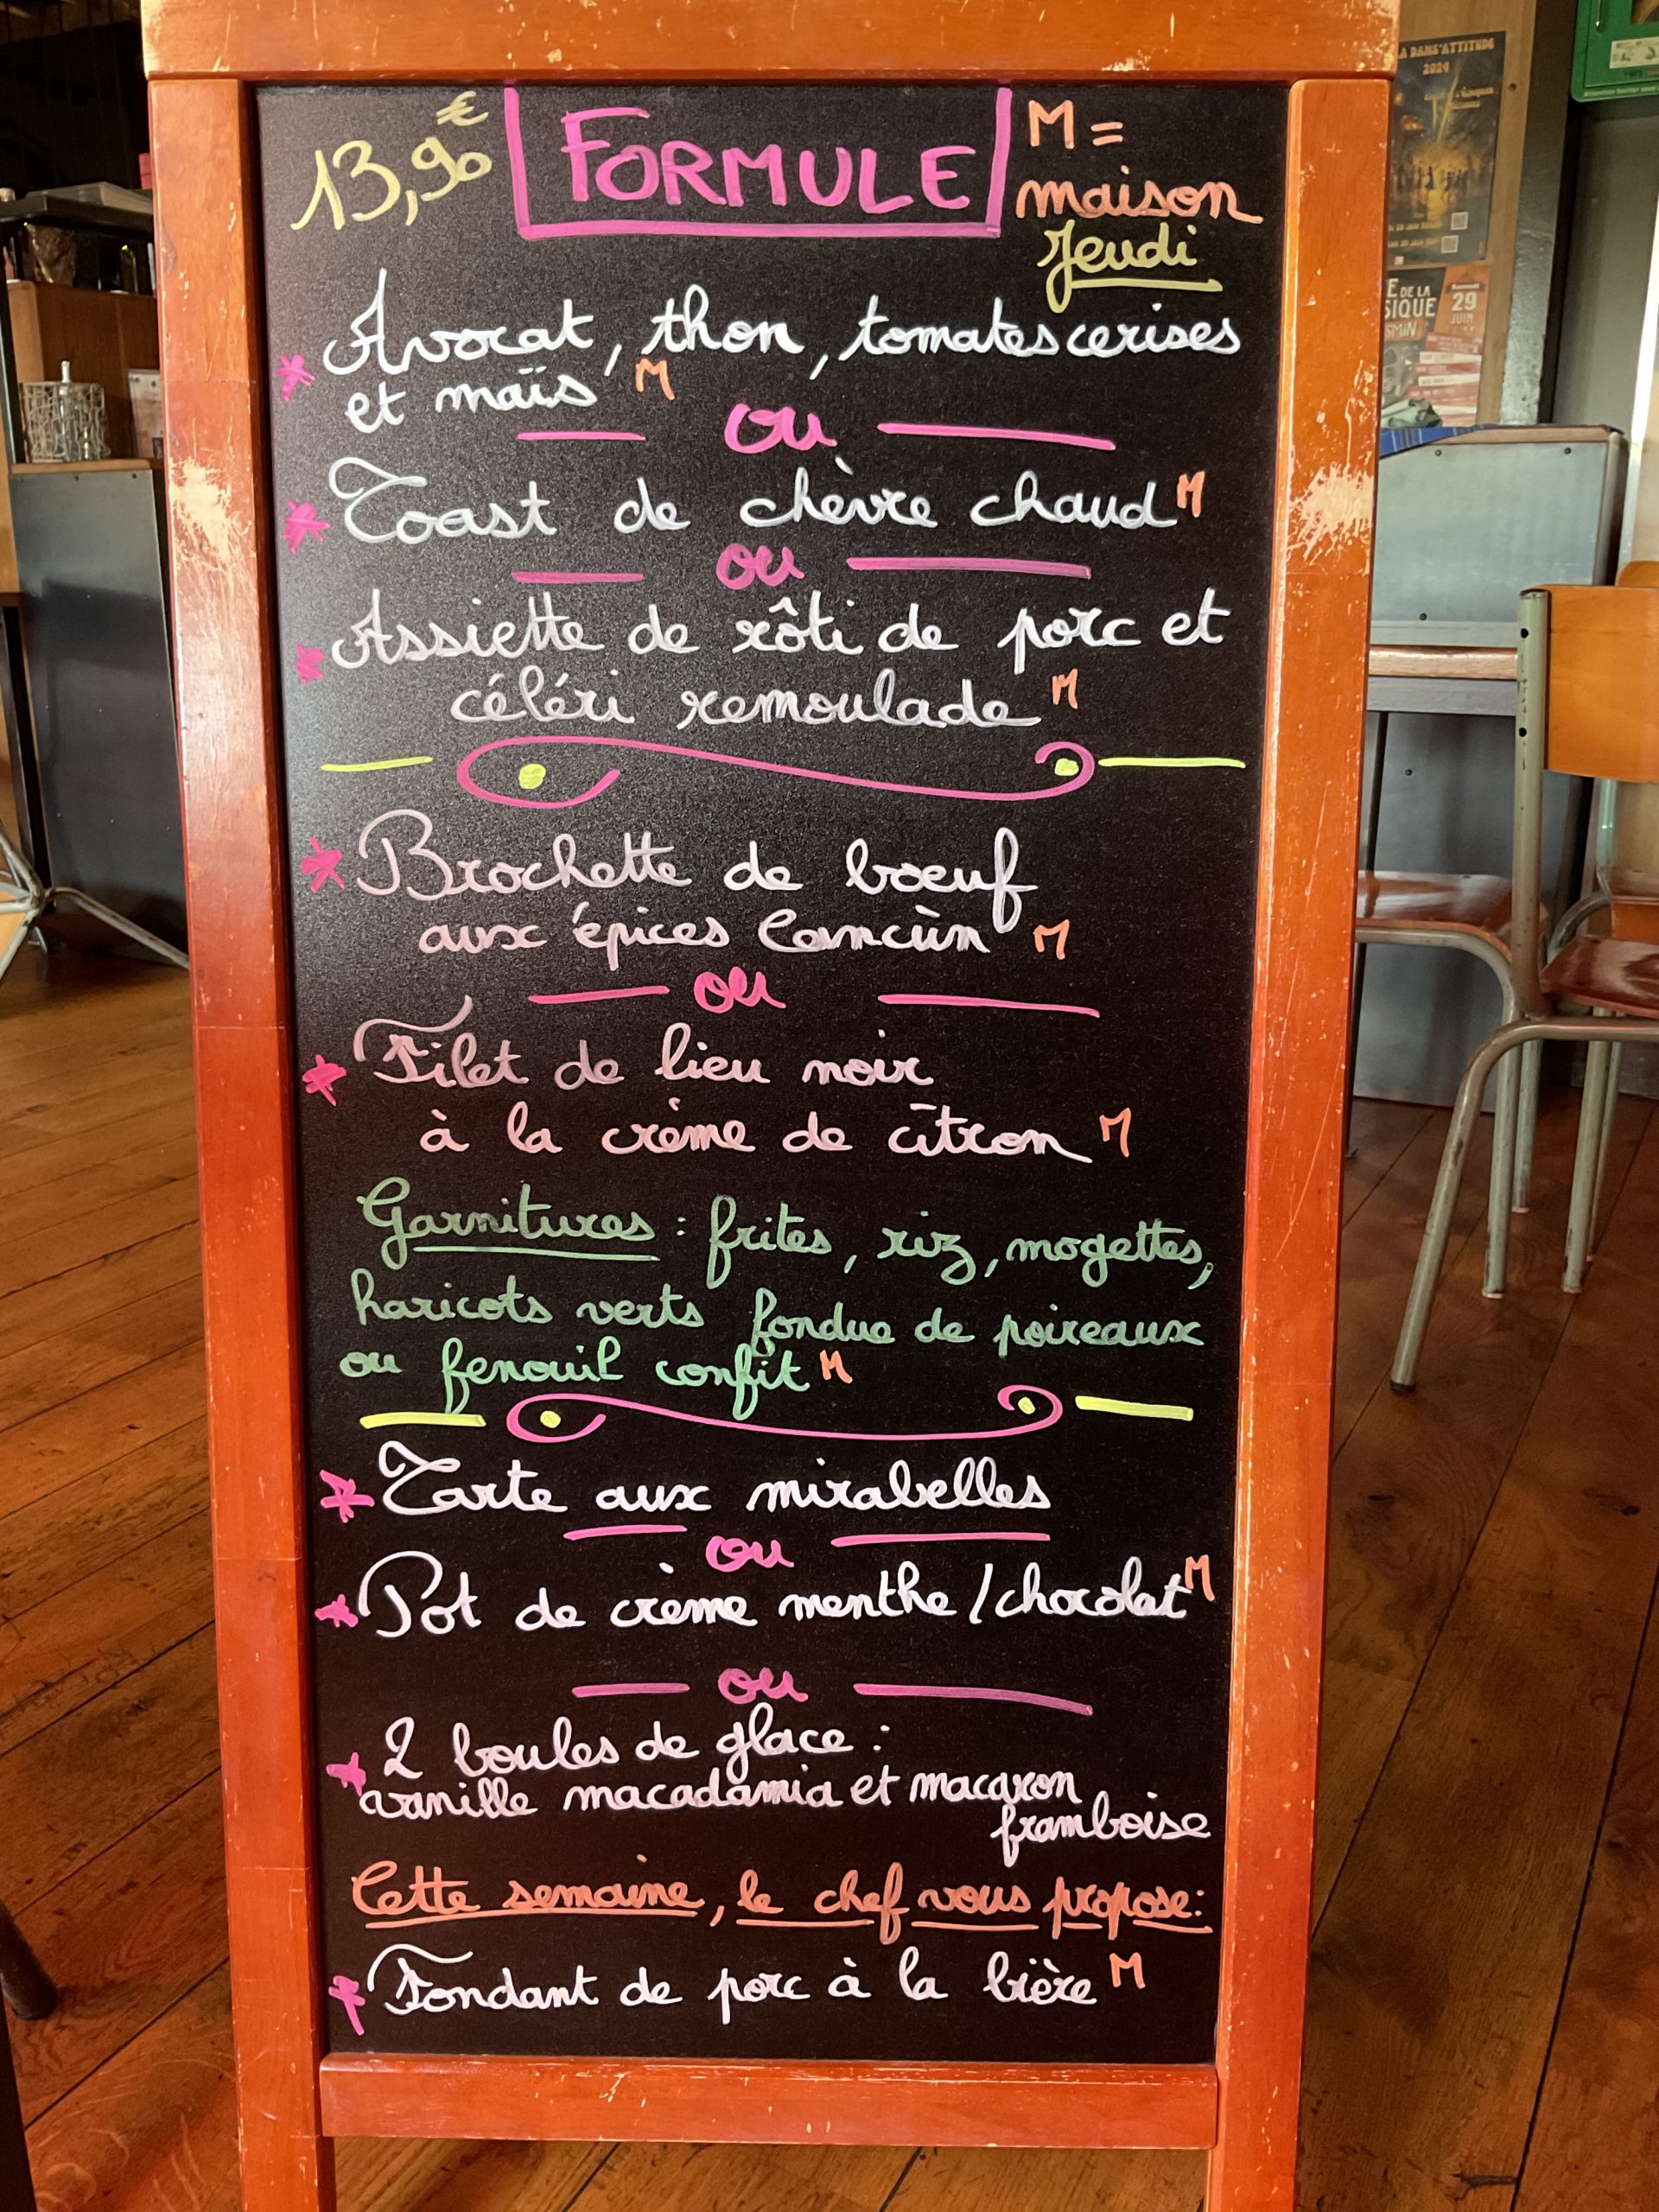 13,90€ FORMULE M =
maison
Jeudi
* Avocat, thon, tomates cerises
et maïs M
ou
* Toast de chèvre chaud M
ou
* Assiette de rôti de porc et
céléri remoulade M
* Brochette de bœuf
aux épices Cancùn M
ou
* Filet de lieu noir
à la crème de citron M
Garnitures : frites, riz, mogettes,
haricots verts fondue de poireaux
ou fenouil confit M
* Tarte aux mirabelles
ou
* Pot de crème menthe / chocolat M
ou
* 2 boules de glace :
vanille macadamia et macaron
framboise
Cette semaine, le chef vous propose :
* Fondant de porc à la bière M
A DANS'ATTITUDE
2024
E DE LA
SIQUE
SMIN
Samedi
29
JUIN